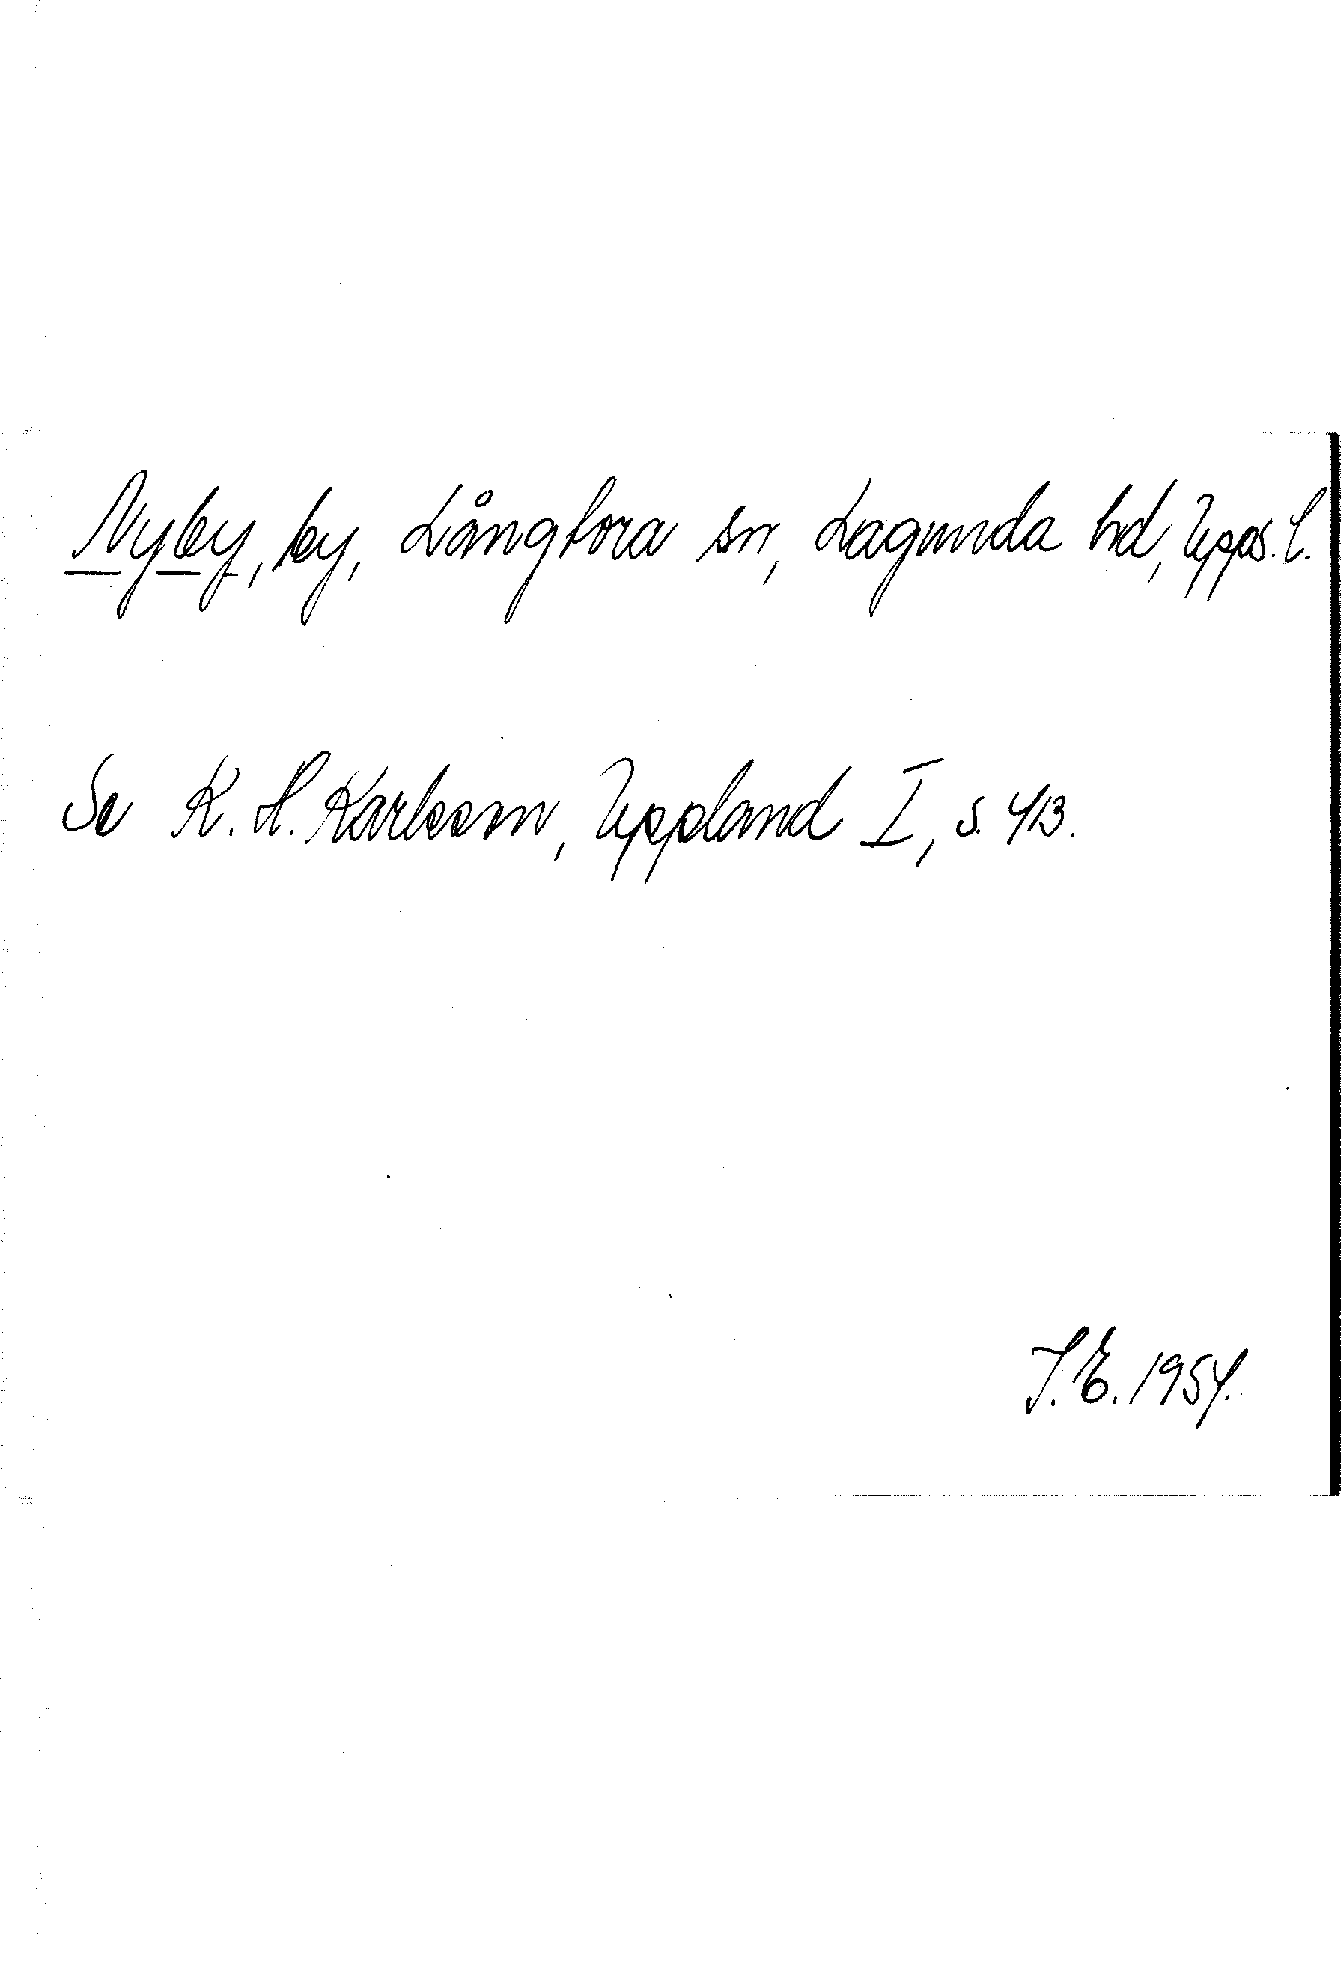 Nyby, by, Långtora sn, Lagunda hd, Upps. l.
Se K. H. Karlsson, Uppland I, s. 413.
I. E. 1954.